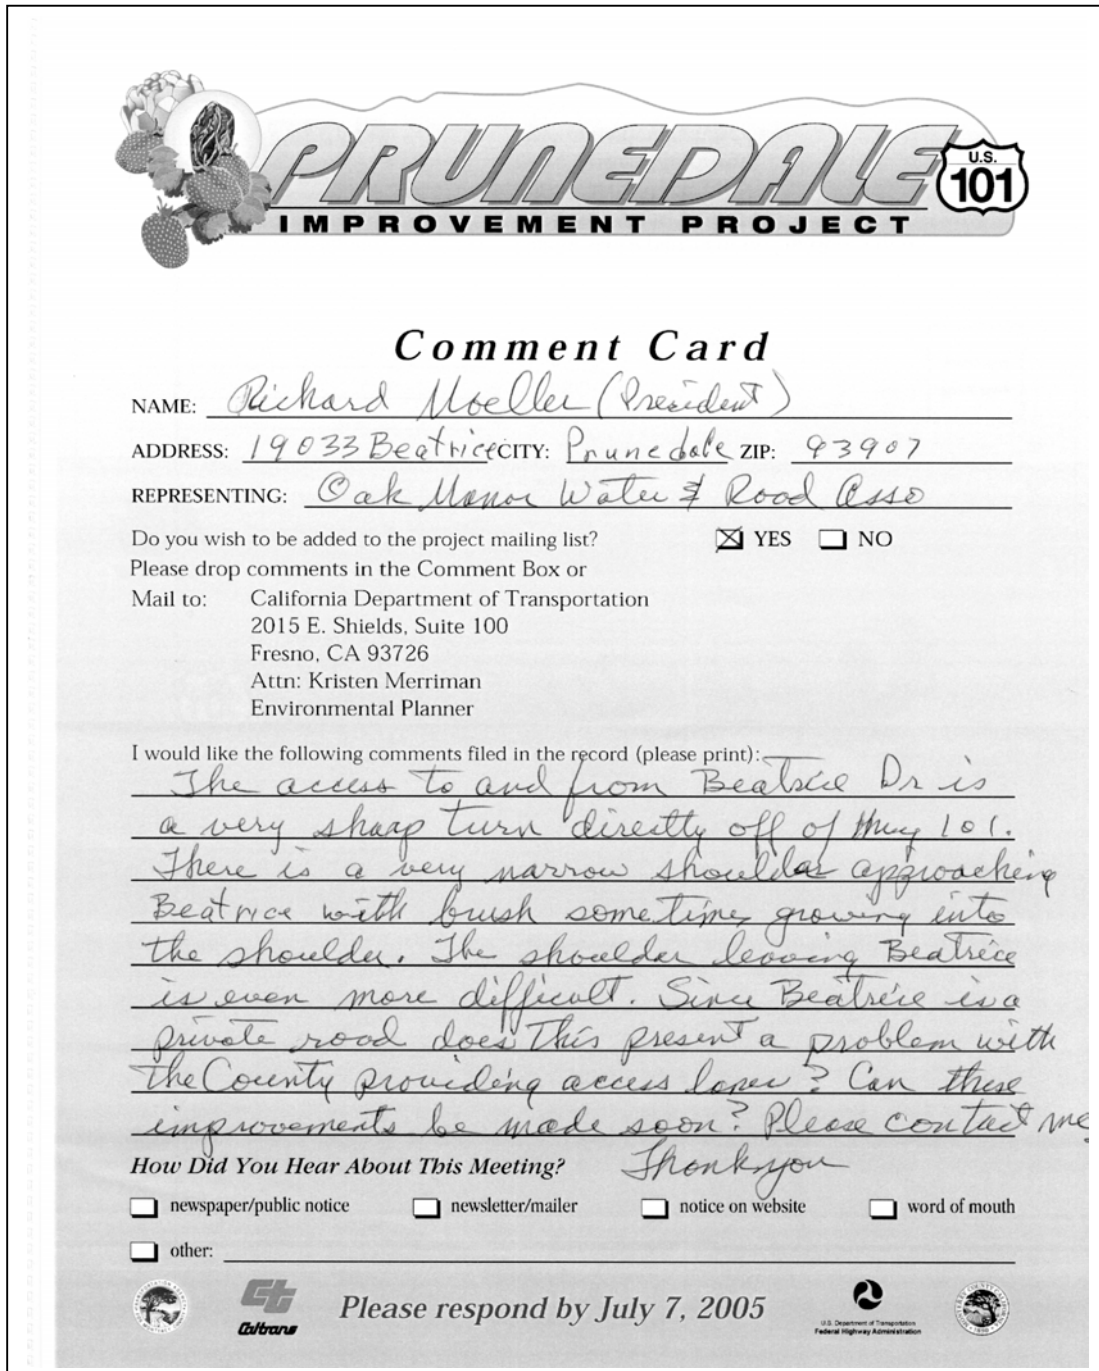 PRUNEDALE
U.S.
101
IMPROVEMENT PROJECT
Comment Card
NAME: Richard Moeller (President)
ADDRESS: 19033 Beatrice CITY: Prunedale ZIP: 93907
REPRESENTING: Oak Manor Water & Road Asso
Do you wish to be added to the project mailing list? YES NO
Please drop comments in the Comment Box or
Mail to: California Department of Transportation
2015 E. Shields, Suite 100
Fresno, CA 93726
Attn: Kristen Merriman
Environmental Planner
I would like the following comments filed in the record (please print):
The access to and from Beatrice Dr is
a very sharp turn directly off of Hwy 101.
There is a very narrow shoulder approaching
Beatrice with brush sometimes growing into
the shoulder. The shoulder leaving Beatrice
is even more difficult. Since Beatrice is a
private road does this present a problem with
the County providing access lanes? Can these
improvements be made soon? Please contact me
How Did You Hear About This Meeting? Thank you
newspaper/public notice newsletter/mailer notice on website word of mouth
other:
Caltrans
Please respond by July 7, 2005
U.S. Department of Transportation
Federal Highway Administration